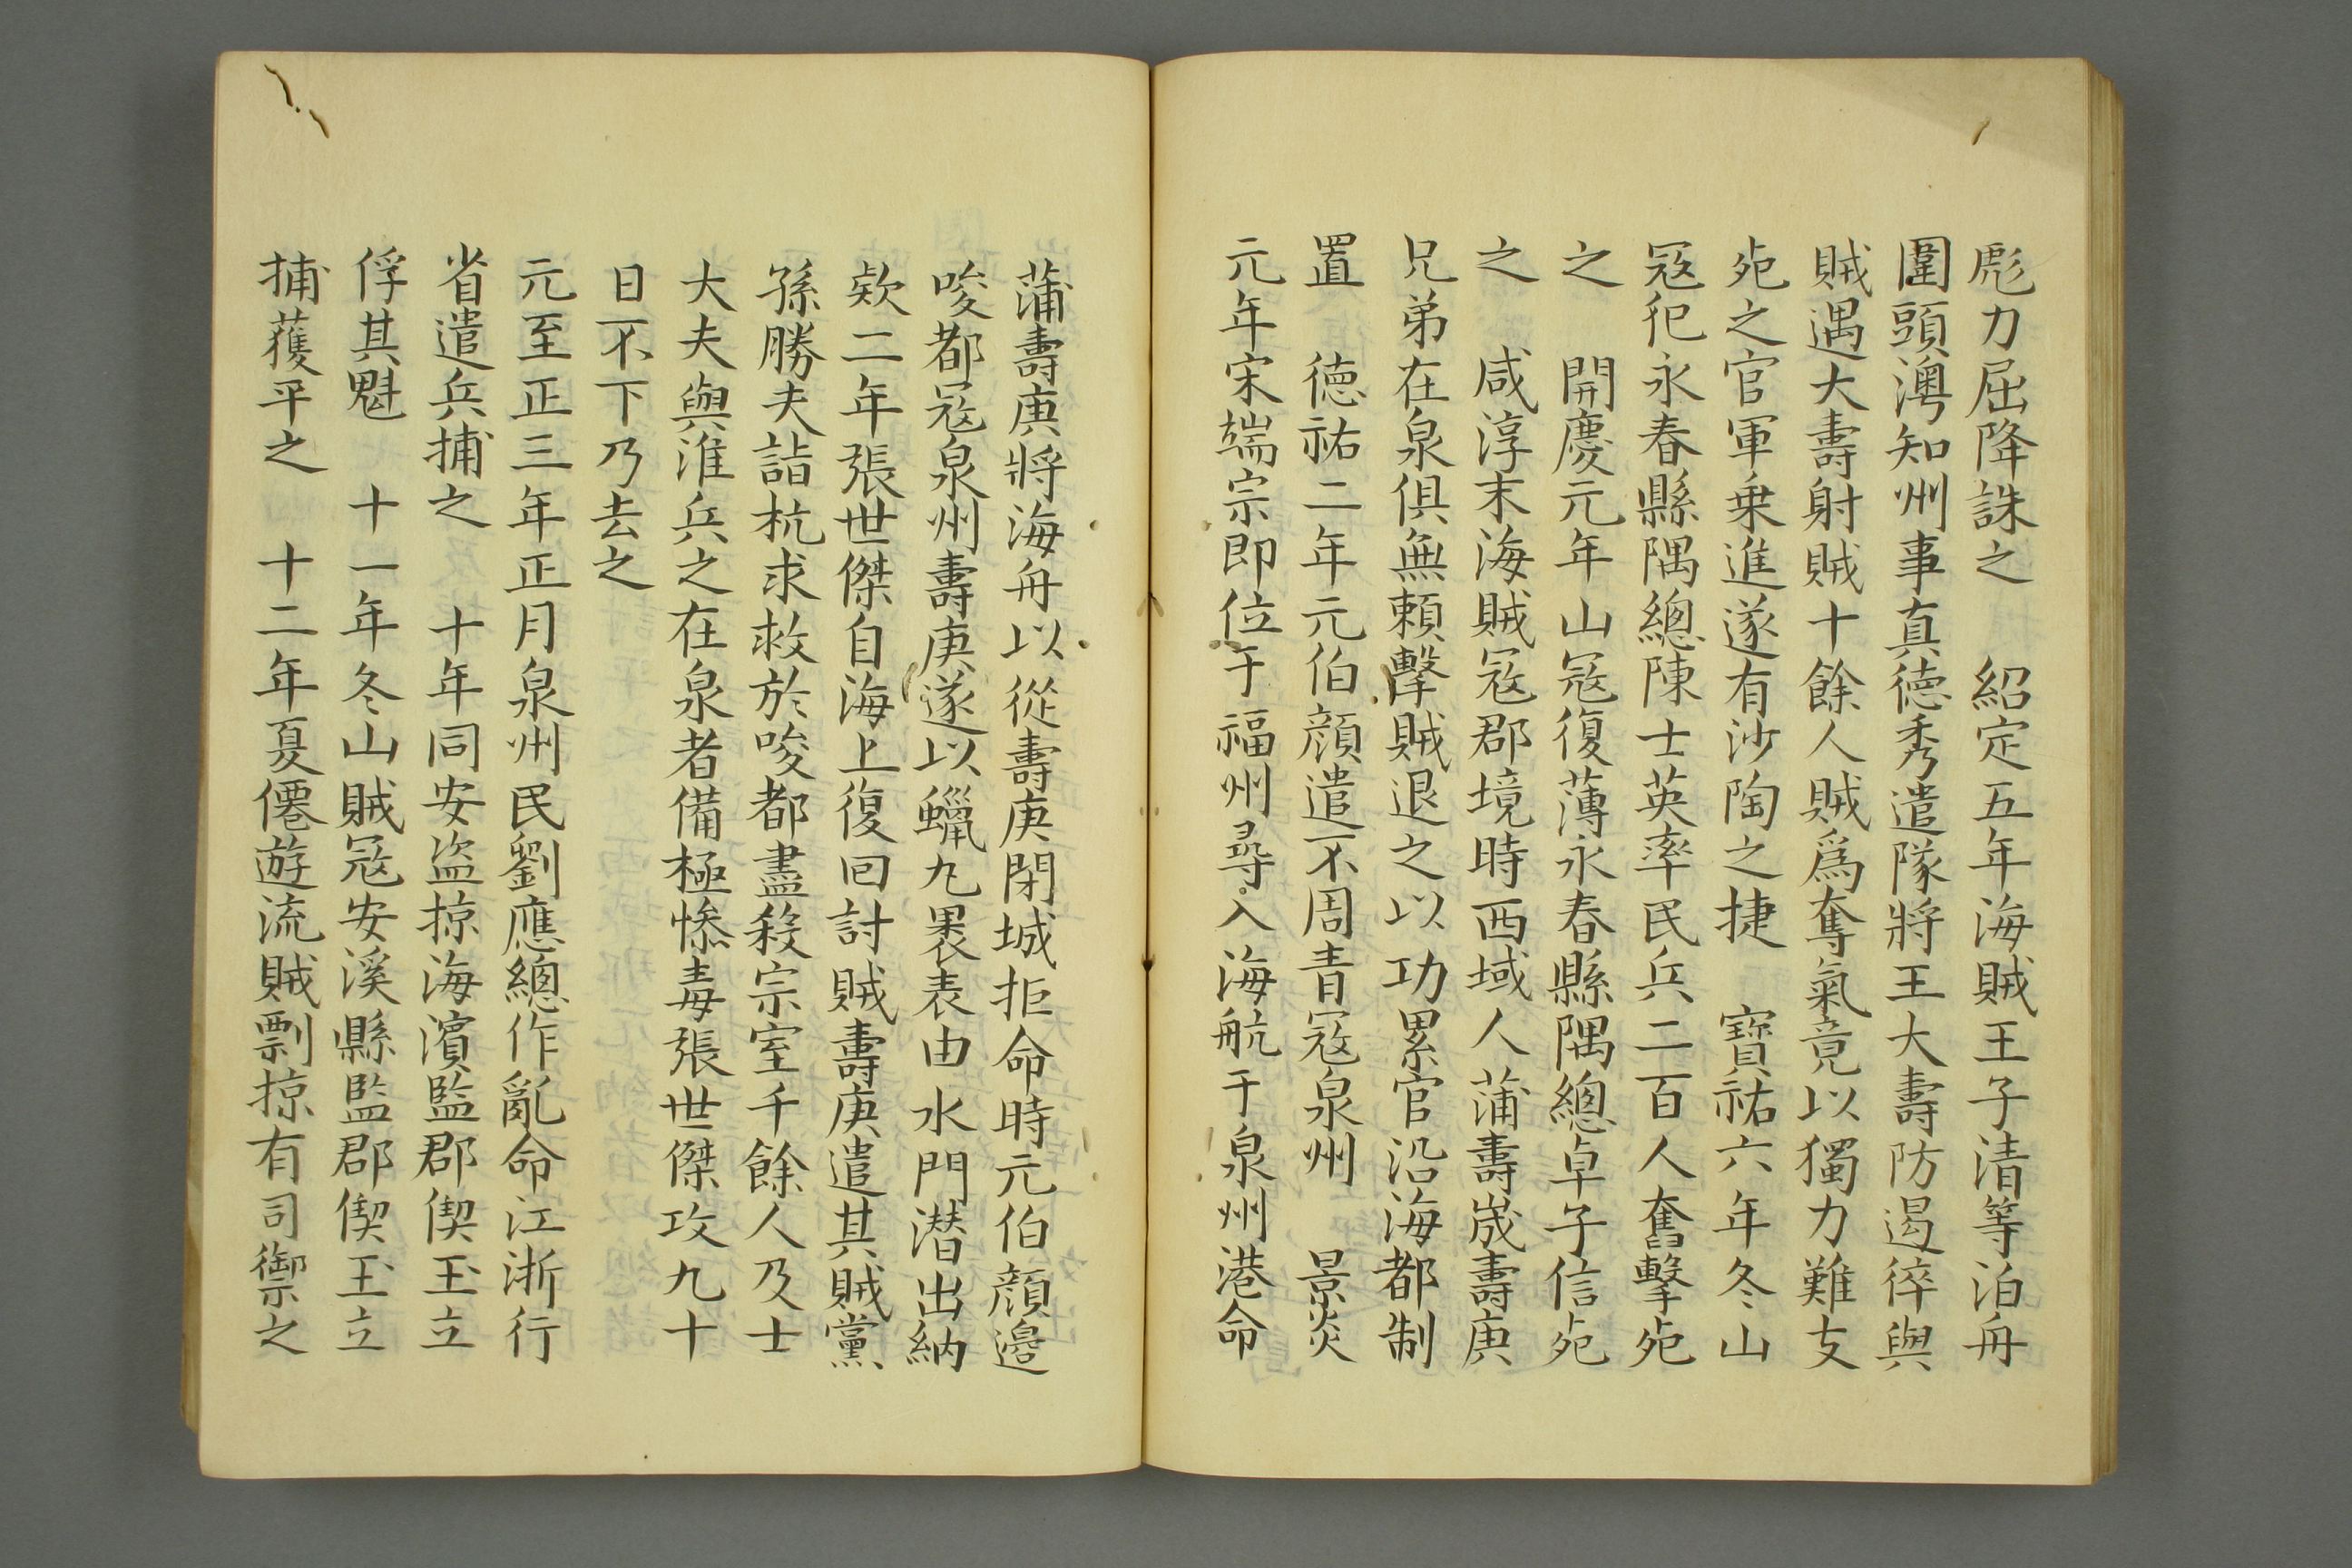 彪力屈降誅之　紹定五年海賊王子清等泊舟
圍頭澳知州事真德秀遣隊將王大壽防遏徑與
賊遇大壽射賊十餘人賊爲奪氣竟以獨力難支
死之官軍乗進遂有沙陶之捷　寶祐六年冬山
冦犯永春縣隅總陳士英率民兵二百人奮擊死
之　開慶元年山冦復薄永春縣隅總卓子信死
之　咸淳末海賊冦郡境時西域人蒲壽宬壽庚
兄弟在泉俱無賴擊賊退之以功累官沿海都制
置　德祐二年元伯顔遣不周青冦泉州　景炎
元年宋端宗即位于福州尋入海航于泉州港命
蒲壽庚將海舟以從壽庚閉城拒命時元伯顔邉
唆都冦泉州壽庚遂以蠟丸裹表由水門潜出納
欵二年張世傑自海上復回討賊壽庚遣其賊黨
孫勝夫詣杭求救於唆都盡殺宗室千餘人及士
大夫與淮兵之在泉者備極慘毒張世傑攻九十
日不下乃去之
元至正三年正月泉州民劉應總作亂命江浙行
省遣兵捕之　十年同安盜掠海濱監郡偰玉立
俘其魁　十一年冬山賊冦安溪縣監郡偰玉立
捕獲平之　十二年夏僊遊流賊剽掠有司禦之